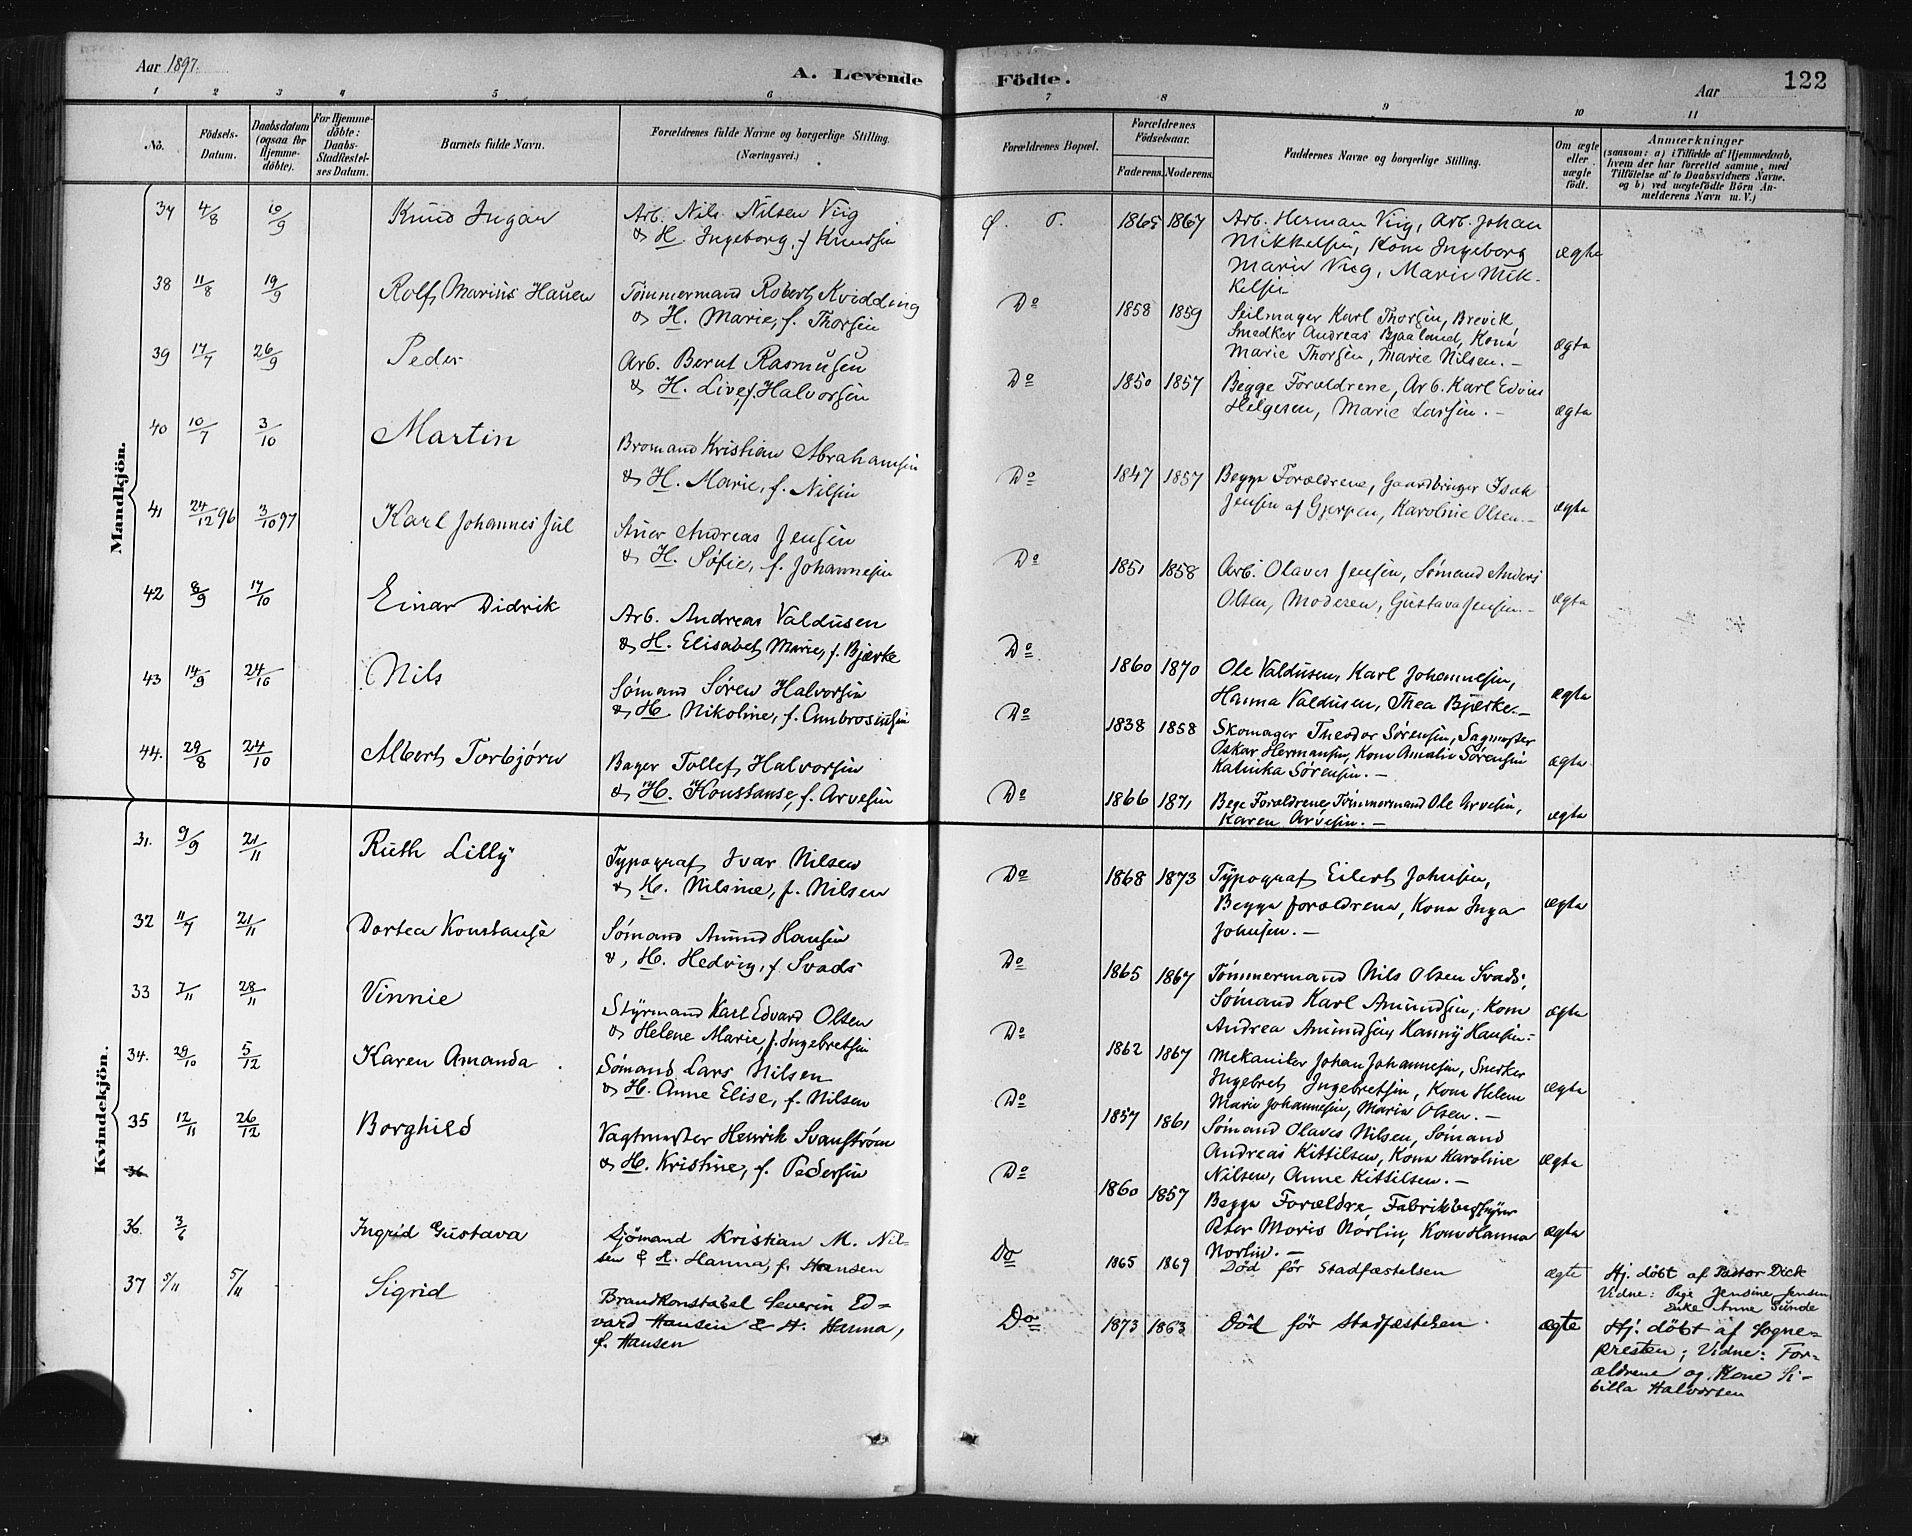 Aar 1897.
A. Levende Födte.
Aar
122
1 2 3 4 5 6 7 8 9 10 11
No.
Födsels-Datum.
Daabsdatum (ogsaa for Hjemme-döbte).
For Hjemme-döbte: Daabs-Stadfestel-ses Datum.
Barnets fulde Navn.
Forældrenes fulde Navne og borgerlige Stilling. (Næringsvei.)
Forældrenes Bopæl.
Forældrenes Födselsaar.
Faderens. Moderens.
Faddernes Navne og borgerlige Stilling.
Om ægte eller uægte födt.
Anmærkninger
(saasom: a) i Tilfælde af Hjemmedaab, hvem der har forrettet samme, med Tilföielse af to Daabsvidners Navne, og b) ved uægtefödte Börn An-melderens Navn m. V.)
Mandkjön.
37 4/8 10/9 Knud Ingvar
Arb. Nils Nilsen Viig
& H. Ingeborg, f. Knudsen
Ø. 1865 1867
Arb. Herman Viig, Arb. Johan
Mikkelsen, Kone Ingeborg
Marie Viig, Marie Mik-
kelsen
ægte
38 11/8 19/9 Rolf Marius Hauen
Tömmermand Robert Kvidding
& H. Marie, f. Thorsen
Do 1858 1859
Seilmager Karl Thorsen, Brevik
Snedker Andreas Bjaaland, Kona
Marie Thorsen, Marie Nilsen. —
ægte
39 17/7 26/9 Peder
Arb. Bernt Rasmusen
& H. Live, f. Halvorsen
Do 1850 1857
Begge Forældrene, Arb. Karl Edvin
Helgesen, Marie Larsen. —
ægte
40 10/7 3/10 Martin
Bromand Kristian Abrahamsen
& H. Marie, f. Nilsen
Do 1847 1857
Begge Forældrene, Gaardbruger Isak
Jensen af Gjerpen, Karoline Olsen. —
ægte
41 24/12 96 3/10 97 Karl Johannes Jül
Stuer Andreas Jensen
& H. Sofie, f. Johannesen
Do 1851 1858
Arb. Olaves Jensen, Sømand Anders
Olsen, Moderen, Gustava Jensen. —
ægte
42 8/9 17/10 Einar Didrik
Arb. Andreas Valdusen
& H. Elisabet Marie, f. Bjærke
Do 1860 1870
Ole Valdusen, Karl Johannesen,
Hanna Valdusen, Thea Bjærke. —
ægte
43 14/9 24/10 Nils
Sømand Søren Halvorsen
& H. Nikoline, f. Ambrosiusen
Do 1838 1858
Skomager Theodor Sørensen, Sagmester
Oskar Hermansen, Kone Amalie Sørensen
Katinka Sørensen. —
ægte
44. 29/8 24/10 Albert Torbjørn
Bager Tollef Halvorsen
& H. Konstanse, f. Arvesen
Do 1866 1871
Bege Forældrene, Tömmermand Ole Arvesen,
Karen Arvesen. —
ægte
Kvindekjön.
31. 9/9 21/11 Ruth Lilly
Typograf Ivar Nilsen
& H. Nilsine, f. Nilsen
Do 1868 1873
Typograf Eilert Johnsen,
Begge forældrene, Kone Inga
Johnsen. —
ægte
32 11/7 21/11 Dortea Konstanse
Sømand Amund Hansen
&, H. Hedvig, f. Svads
Do 1865 1867
Tömmermand Nils Olsen Svads,
Sømand Karl Amundsen, Kone
Andrea Amundsen, Hanny Hansen. —
ægte
33 2/11 28/11 Vinnie
Styrmand Karl Edvard Olsen
& Helene Marie, f. Ingebretsen
Do 1862 1867
Mekaniker Johan Johannesen, Snekker
Ingebret Ingebretsen, Kone Helene
Marie Johannesen, Maria Olsen. —
ægte
34. 29/10 5/12 Karen Amanda
Sømand Lars Nilsen
& H. Anne Elise, f. Nilsen
Do 1857 1861
Sømand Olaves Nilsen, Sømand
Andreas Kittilsen, Kone Karoline
Nilsen, Anne Kittilsen. —
ægte
35 12/11 26/12 Borghild
Vagtmester Henrik Svanstrøm
& H. Kristine, f. Pedersen
Do 1860 1857
Begge Forældre, Fabrikbestyrer
Peter Moris Norlin, Kone Hanna
Norlin. —
ægte
36
36. 3/6 Ingrid Gustava
Sjömand Kristian M. Nil-
sen & H. Hanna, f. Hansen
Do 1865 1869
Död før Stadfæstelsen
ægte
Hj. döbt af Pastor Dick
Vidne: Pige Jensine Jensen
Enke Anne Sunde
37 5/11 5/11 Sigrid
Brandkonstabel Severin Ed-
vard Hansen & H. Hanna,
f. Hansen
Do 1873 1863
Död før Stadfæstelsen.
ægte
Hj. döbt af Sogne-
presten; Vidne: For-
ældrene og Kone Si-
billa Halvorsen